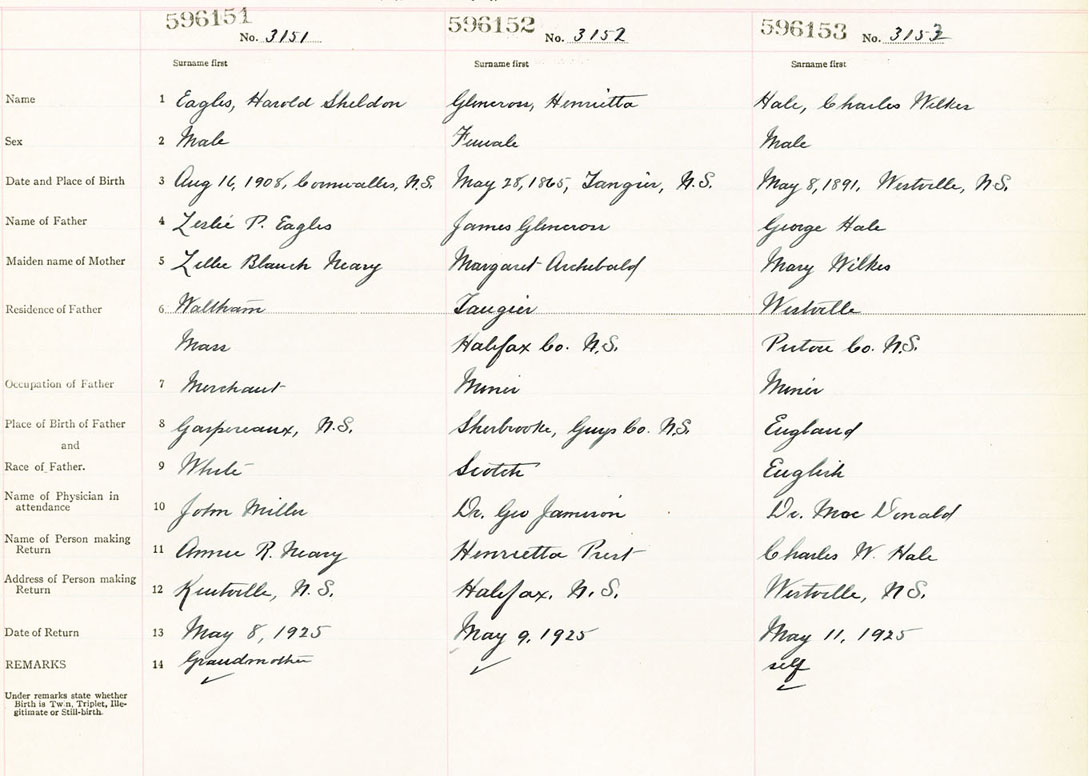 596151 No. 3151
596152 No. 3152
596153 No. 3153
Surname first Surname first Surname first
Name 1 Eagles, Harold Sheldon Glencross, Henrietta Hale, Charles Wilkes
Sex 2 Male Female Male
Date and Place of Birth 3 Aug 16, 1908, Cornwallis, N.S. May 28, 1865, Tangier, N.S. May 8, 1891, Westville, N.S.
Name of Father 4 Leslie P. Eagles James Glencross George Hale
Maiden name of Mother 5 Lellie Blanch Neary Margaret Archibald Mary Wilkes
Residence of Father 6 Waltham Tangier Westville
Mass Halifax Co. N.S. Pictou Co. N.S.
Occupation of Father 7 Merchant Miner Miner
Place of Birth of Father 8 Gaspereaux, N.S. Sherbrooke, Guys Co. N.S. England
and
Race of Father. 9 White Scotch English
Name of Physician in attendance 10 John Miller Dr. Geo Jamison Dr. MacDonald
Name of Person making Return 11 Annie R. Neary Henrietta Prest Charles W. Hale
Address of Person making Return 12 Kentville, N.S. Halifax, N.S. Westville, N.S.
Date of Return 13 May 8, 1925 May 9, 1925 May 11, 1925
REMARKS 14 Grandmother self
Under remarks state whether
Birth is Twin, Triplet, Ille-
gitimate or Still-birth.